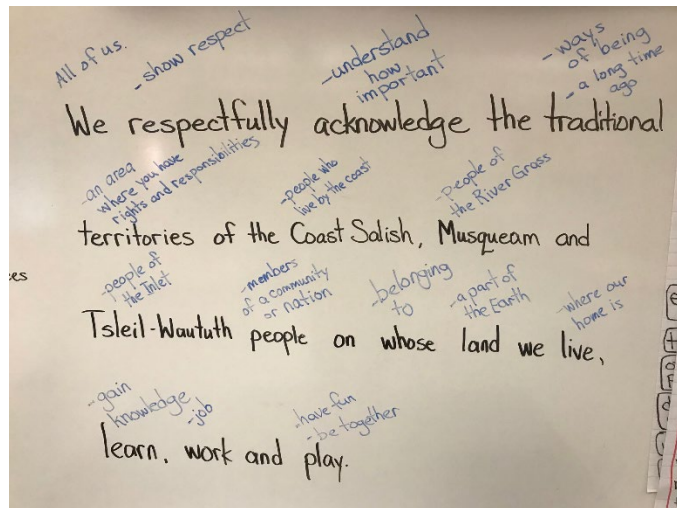 All of us.
- show respect
- understand
how
important
- ways
of being
- a long time
ago
We respectfully acknowledge the traditional
- an area
where you have
rights and responsibilities
- people who
live by the coast
- people of
the River Grass
territories of the Coast Salish, Musqueam and
- people of
the Inlet
- members
of a community
or nation
- belonging
to
- a part of
the Earth
- where our
home is
Tsleil-Waututh people on whose land we live,
- gain
knowledge
- job
- have fun
- be together
learn, work and play.